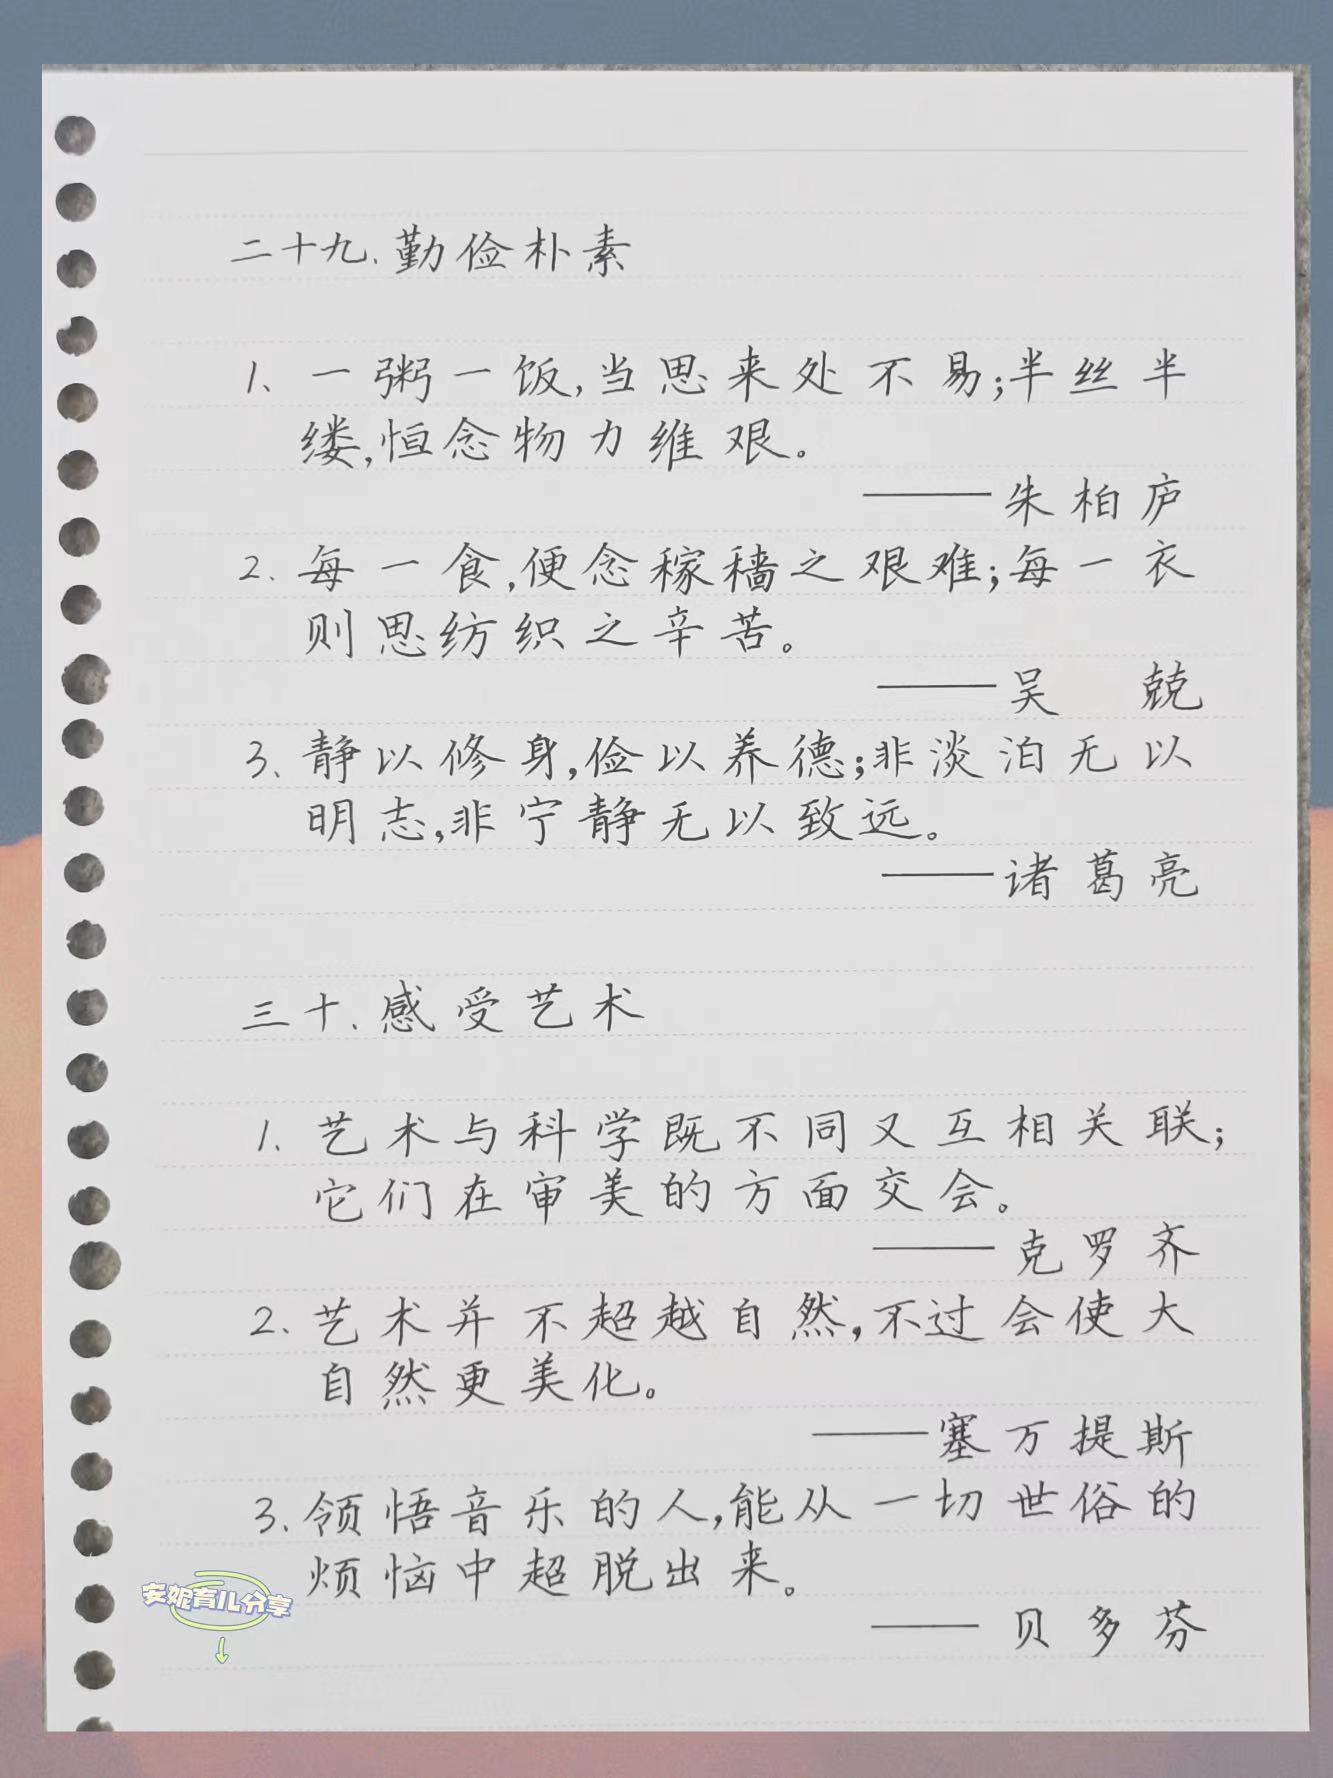 二十九.勤俭朴素
1.一粥一饭,当思来处不易;半丝半
缕,恒念物力维艰。
——朱柏庐
2.每一食,便念稼穑之艰难;每一衣
则思纺织之辛苦。
——吴 兢
3.静以修身,俭以养德;非淡泊无以
明志,非宁静无以致远。
——诸葛亮
三十.感受艺术
1.艺术与科学既不同又互相关联;
它们在审美的方面交会。
——克罗齐
2.艺术并不超越自然,不过会使大
自然更美化。
——塞万提斯
3.领悟音乐的人,能从一切世俗的
烦恼中超脱出来。
——贝多芬
安妮育儿分享